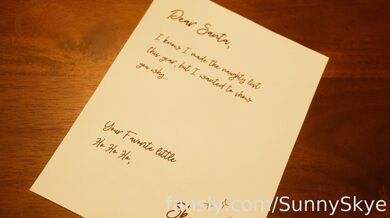 Dear Santa,
I know I made the naughty list
this year, but I wanted to show
you why...
Your Favorite little
Ho Ho Ho,
fansly.com/SunnySkye